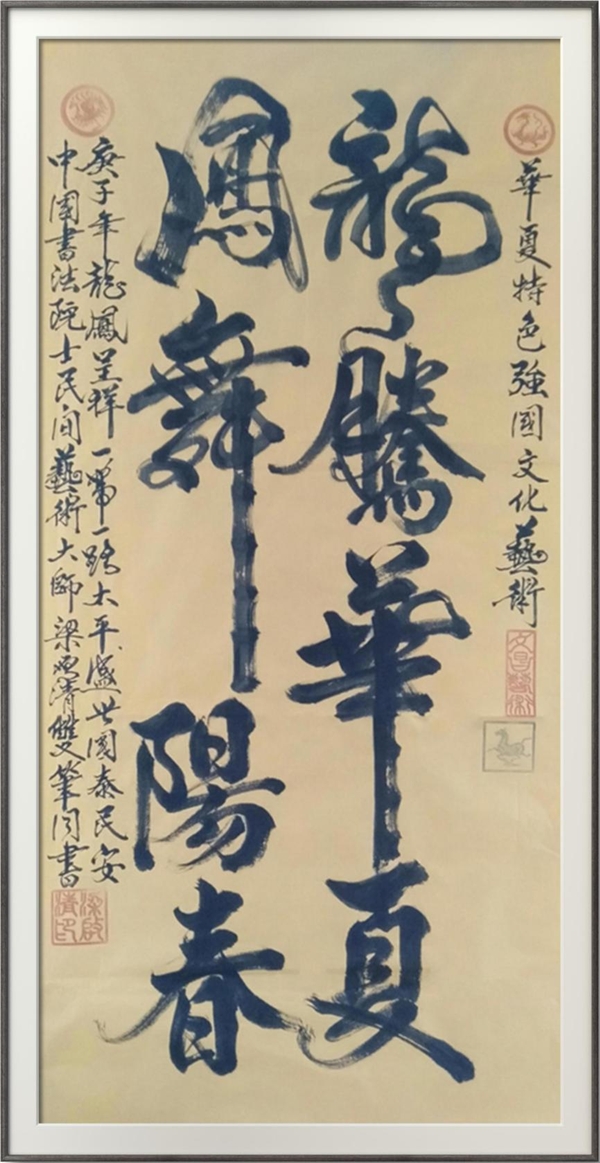 華夏特色強國文化藝術
龍騰華夏
鳳舞陽春
庚子年龍鳳呈祥一帶一路太平盛世國泰民安
中國書法院士民间藝術大師梁啟清雙筆同書
梁啟清印